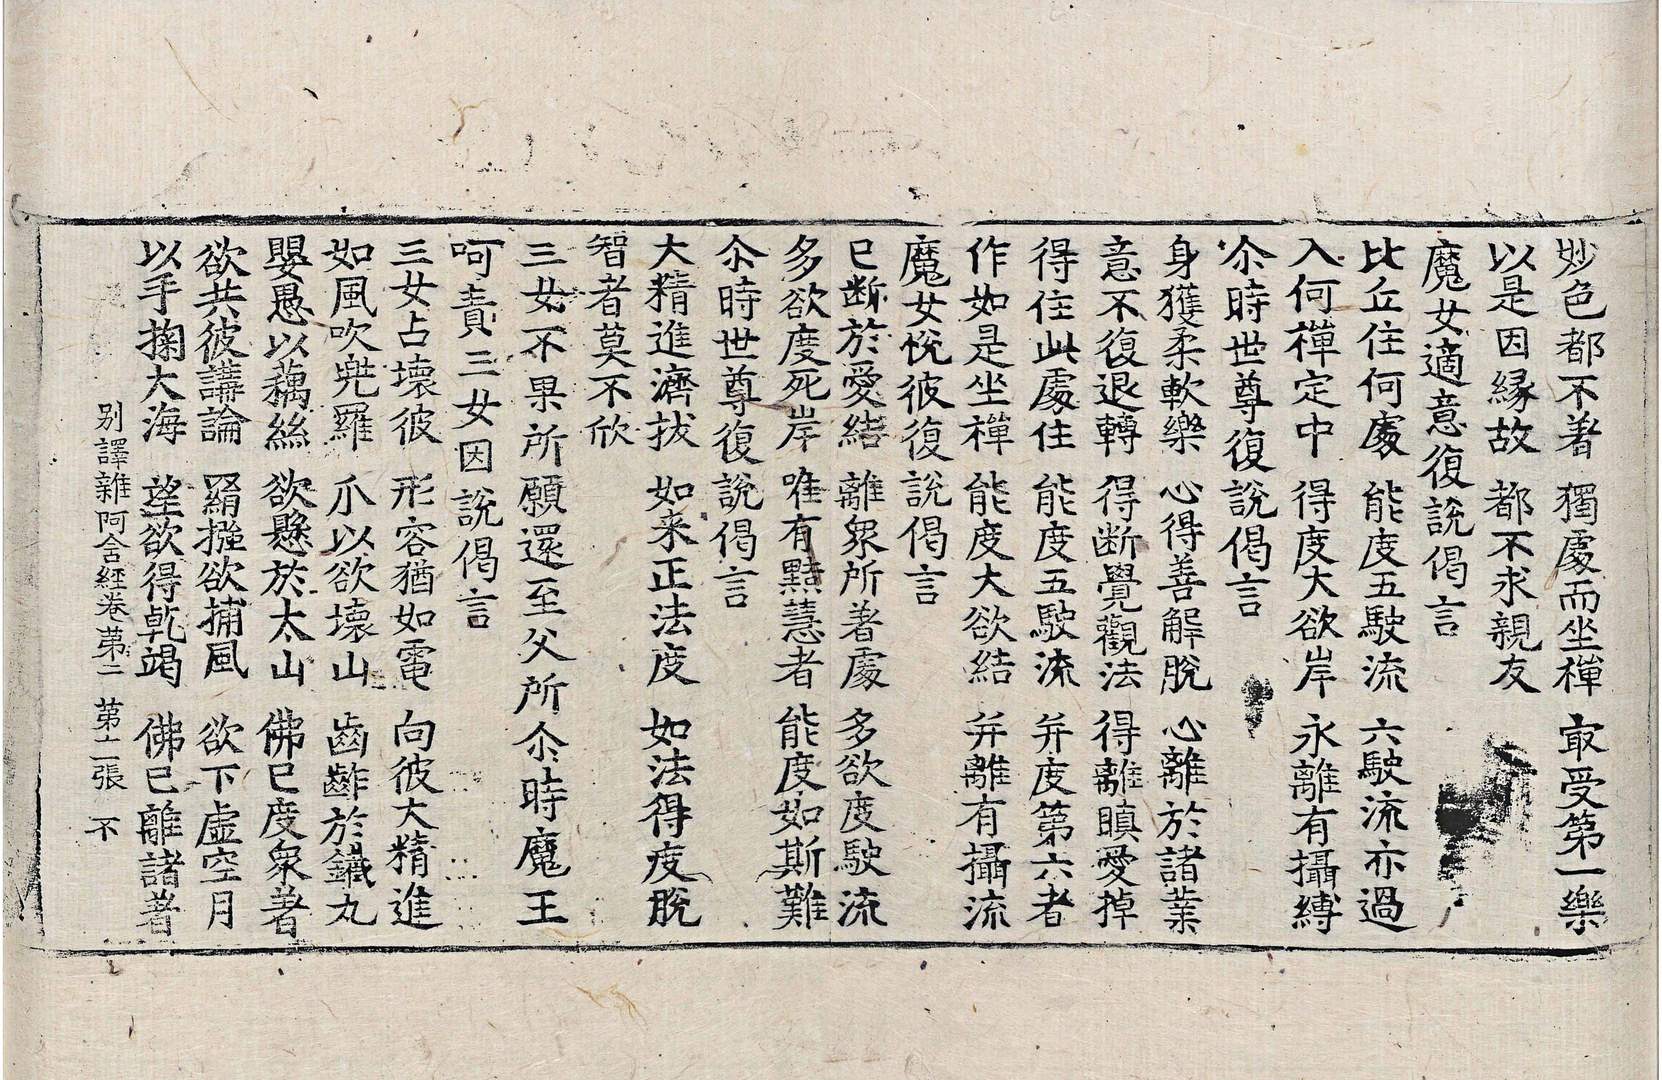 妙色都不著　獨處而坐禪　㝡受第一樂
以是因緣故　都不求親友
魔女適意復說偈言
比丘住何處　能度五駛流　六駛流亦過
入何禪定中　得度大欲岸　永離有攝縛
尒時世尊復說偈言
身獲柔軟樂　心得善解脫　心離於諸業
意不復退轉　得断覺觀法　得離瞋愛掉
得住此處住　能度五駛流　并度第六者
作如是坐禪　能度大欲結　并離有攝流
魔女悅彼復說偈言
已断於愛結　離衆所著處　多欲度駛流
多欲度死岸　唯有黠慧者　能度如斯難
尒時世尊復說偈言
大精進濟拔　如来正法度　如法得度脫
智者莫不欣
三女不果所願還至父所尒時魔王
呵責三女因說偈言
三女占壞彼　形容猶如電　向彼大精進
如風吹兠羅　爪以欲壞山　齒齚於鐵丸
嬰愚以藕絲　欲懸於太山　佛已度衆著
欲共彼講論　羂摾欲捕風　欲下虛空月
以手掬大海　望欲得乹竭　佛已離諸著
別譯雜阿含經卷苐二　第二張　不